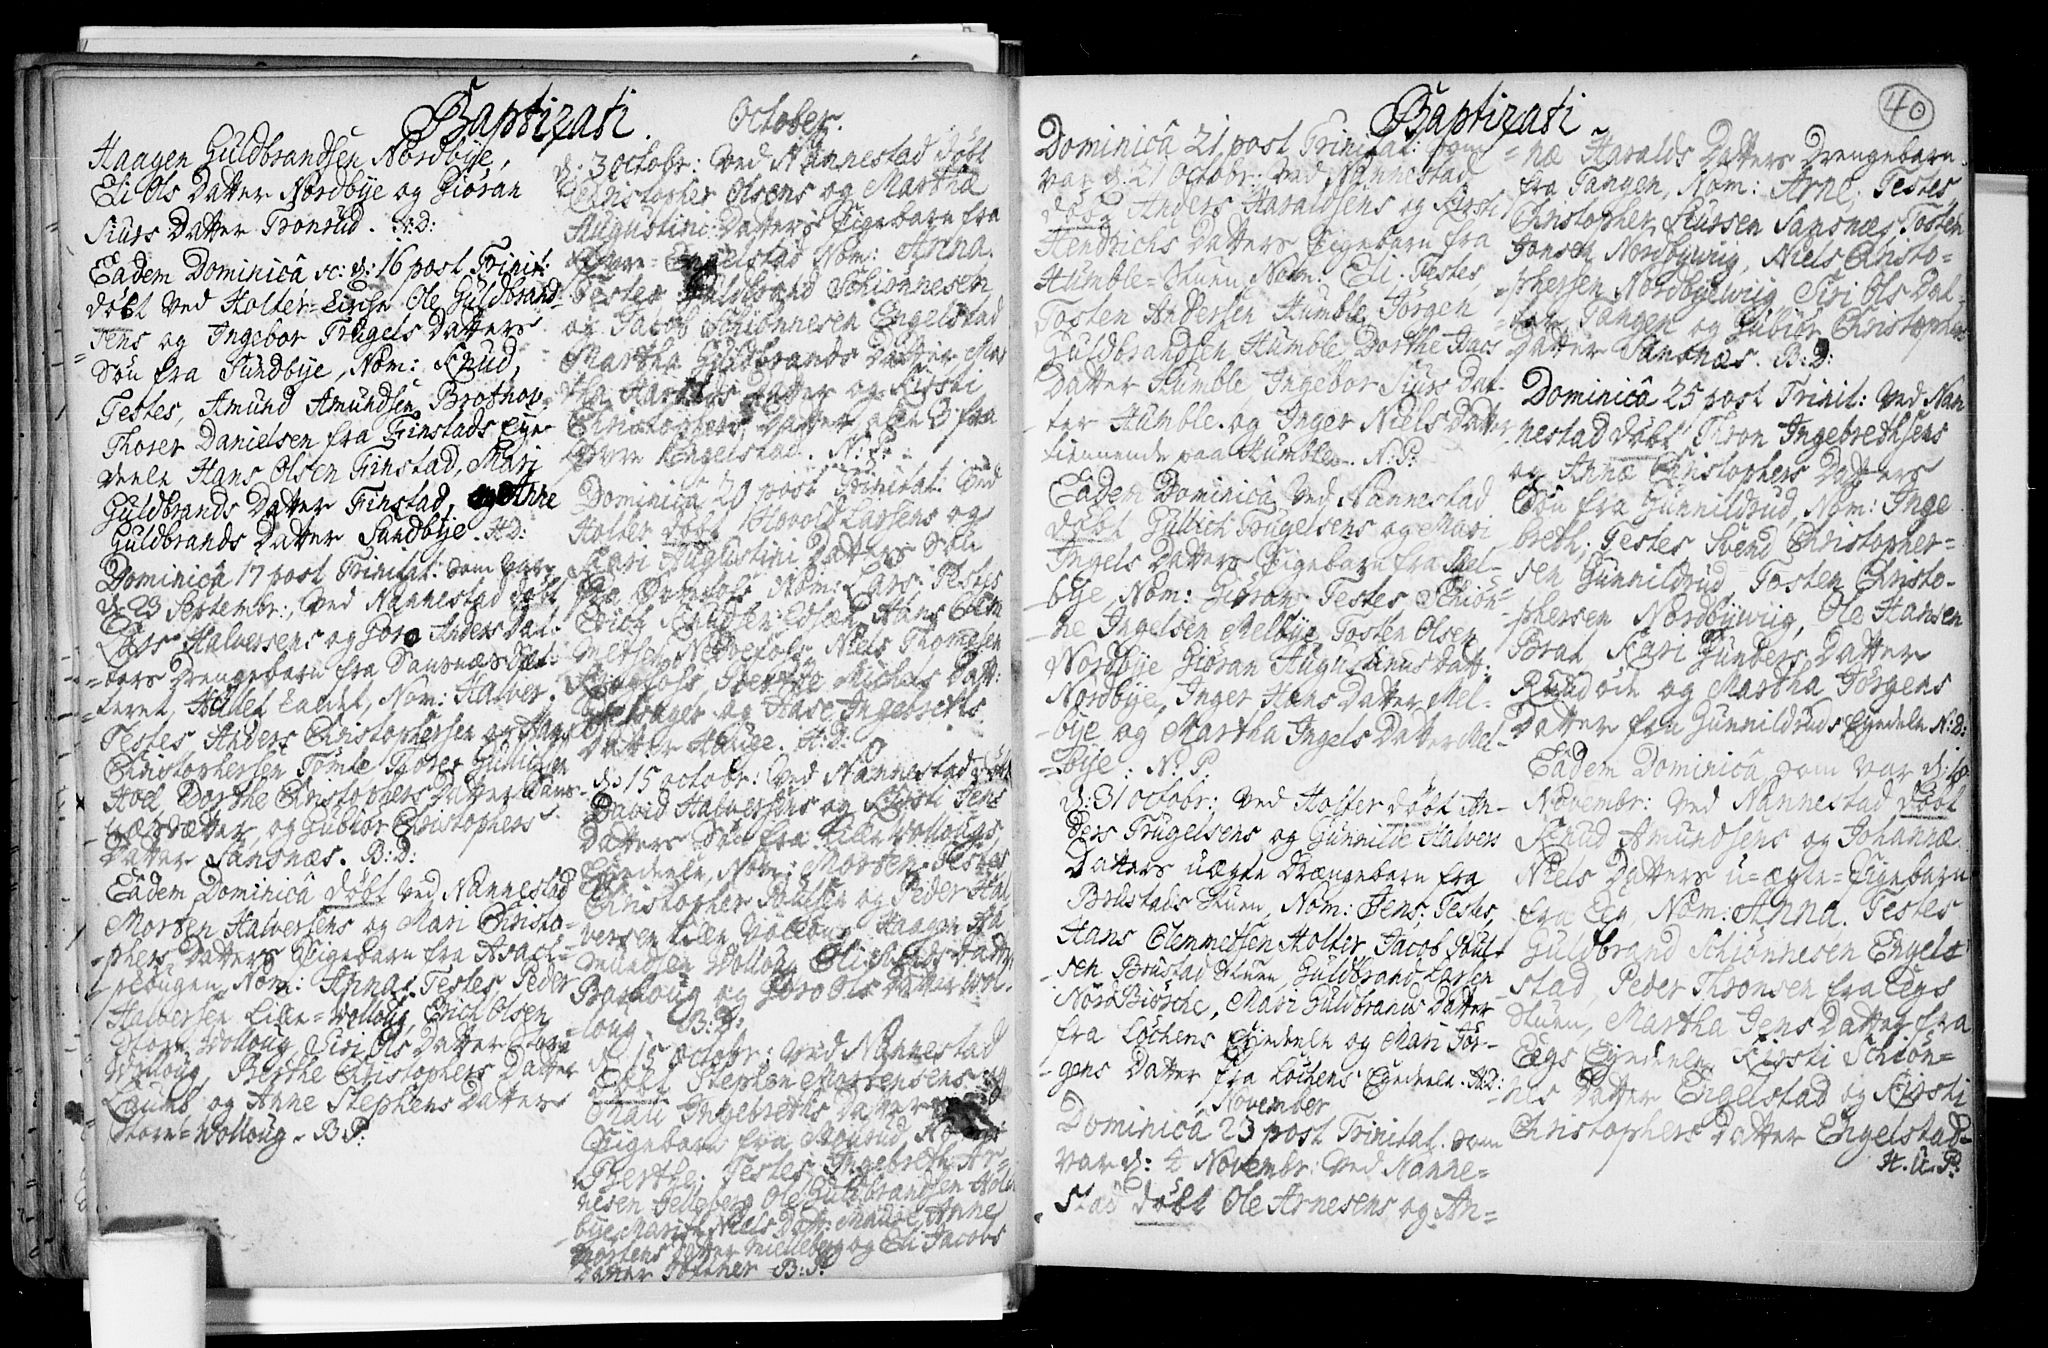 Baptizati.
Haagen Guldbrandsen Nordbye,
Eli Ols Datter Nordbye og Giöran
Siurs Datter Tronsrud. H:D:
Eadem Dominicâ sc: d: 16 post Trinit:
döbt ved Holter-Kirche Ole Guldbrand-
=sens og Ingebor Trugels Datters
Sön fra Sundbye, Nom: Knud,
Testes, Amund Amundsen
Thorer Danielsen fra Finstads Eye-
deele Hans Olsen Finstad, Mari
Guldbrands Datter Finstad, og Anne
Guldbrands Datter Sundbye. H:D:
Dominicâ 17 post Trinitat: som var
d. 23 Septembr:, ved Nannestad döbt
Lars Halversens og Goro Anders Dat-
=ters Drengebarn fra
kaldet, Nom: Halver.
Testes, Anders Christophersen og Hans
Christophersen Tömte Thorer Gullichsen
Hoel, Dorthe Christophers Datter
og Gubiör Christophers
Datter Sansnæs. B:D:
Eadem Dominicâ döbt ved Nannestad
Morten Halversens og Mari Christo-
-phers Datters Pigebarn fra
Nom: Anna, Testes Peder
Halversen Lille=Wolloug, Erich Olsen
Store Wolloug, Siri Ols Datter Store
Wolloug, Berthe Christophers Datter
Laumb og Anne Stephens Datter
Store=Wolloug. B:P:
October.
d. 3 Octobr: ved Nannestad döbt
Christopher Olsens og Martha
Augustini Datters Pigebarn fra
Engelstad Nom: Anna.
Testes Guldbrand Schiönnesen
og Jacob Schiönnesen Engelstad
Martha Guldbrands Datter Mar-
tha Haralds Datter og Kirsti
Christophers Datter, alle 3 fra
Engelstad. N:P:
Dominicâ 20 post Trinitat: ved
Holter döbt Hovold Larsens og
Kari Augustini Datters Sön
fra Nom: Lars. Testes
Erich Knudsen Hans Clem
metsen Niels Thomesen
Berthe Michels Datt:
og Aase Ingebreths
Datter Houge. H:D:
d: 15 octobr: ved Nannestad döbt
David Halversens og Kirsti Jens
Datters Sön fra Lille Wollougs
Eyedeele, Nom: Morten. Testes
Christopher Poulsen og Peder Hal-
versen Lille Wolloug, Haagen A-
mundsen Wolloug, Eli Datter
og Goro Ols Datter Wol-
loug. B:D:
d. 15 Octobr: ved Nannestad
döbt Stephen Mortensens og
Mari Ingebreths Datters
Pigebarn fra Mousrud,
Berthe: Testes, Ingebreth Ar-
nesen Ole Guldbrandsen Hol-
bye, Niels Datt: Anne
Mortens Datter og Eli Jacobs
Datter B:P:
Baptizati
40
Dominicâ 21 post Trinitat: som
var d. 21 Octobr: ved Nannestad
döbt Anders Haraldsens og Kirsti
Hendrichs Datters Pigebarn fra
Humble=Stuen, Nom: Eli. Testes,
Tosten Andersen Humble, Jörgen
Guldbrandsen Humble, Dorthe
Datter Humble, Ingebor Siurs Dat-
-ter Humble. og Inger Niels Datter
tiennende paa Humble. N:P:
Eadem Dominicâ ved Nannestad
döbt Gullich Trugelsens og Mari
Ingels Datters Pigebarn fra Mel-
-bye, Nom: Giöran. Testes Schiön-
-ne Ingelsen Melbye, Tosten Olsen
Nordbye Giöran Augustinus Datt:
Nordbye, Inger Hans Datter Mel-
-bye og Martha Ingels Datter Mel-
=bye. N:P:
d: 31 octobr: ved Holter döbt An-
ders Trugelsens og Gunnilde Halvers
Datters uægte Drængebarn fra
Brustads Stuen, Nom: Jens: Testes,
Hans Clemmetsen Holter, Jacob Poul-
-sen Brustad Stuen, Guldbrand Larsen
Nord Biörche, Mari Guldbrands Datter
fra Löchens Eyedeele og Mari Jör-
-gens Datter fra Löchens Eyedeele. H:D:
November
Dominicâ 23 post Trinitat. som
var d: 4 Novembr: ved Nanne=
Stad döbt Ole Arnesens og An=
=næ Haralds Datters Drengebarn
fra Tangen, Nom: Arne; Testes,
Christopher Siursen Sansnæs, Tosten
Jonsen Nordbywiig, Niels Christo-
-phersen Nordbyewiig, Siri Ols Dat-
-ter Tangen og Gubiör Christophers
Datter Sansnæs. B:D:
Dominicâ 25 post Trinit: ved Nan
nestad döbt Thron Ingebrethsens
og Annæ Christophers Datters
Sön fra Gunnildrud, Nom: Inge
breth. Testes Svend Christopher=
sen Gunnildrud, Tosten Christo-
-phersen Nordbywiig, Ole Hansen
Brat, Kari Gunders Datter
Ruud öde og Martha Jörgens
Datter fra Gunnildruds Eyedeele N:D:
Eadem Dominicâ, som var d: 18
Novembr: ved Nannestad döbt
Knud Amundsens og Johannæ
Niels Datters u=ægte=Pigebarn
fra Eeg, Nom: Anna. Testes
Guldbrand Schiönnesen Engel-
-stad, Peder Thronsen fra Eegs
Stuen, Martha Jens Datter fra
Eegs Eyedeele, Kirsti Schiön=
nes Datter Engelstad og Kirsti
Christophers Datter Engelstad-
H.U.P.